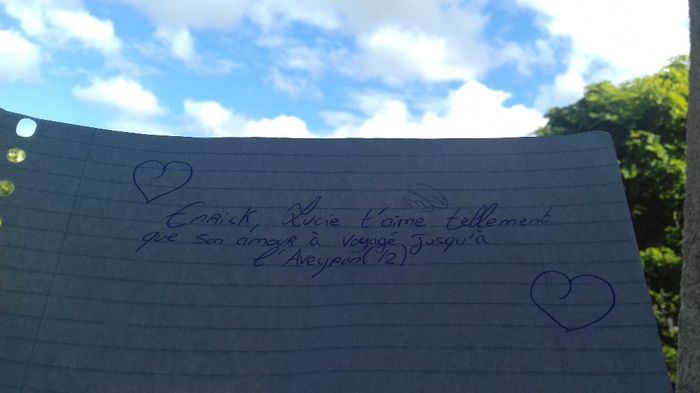 Enrick, Lucie t'aime tellement
que son amour à voyagé jusqu'à
l'Aveyron (1/2)